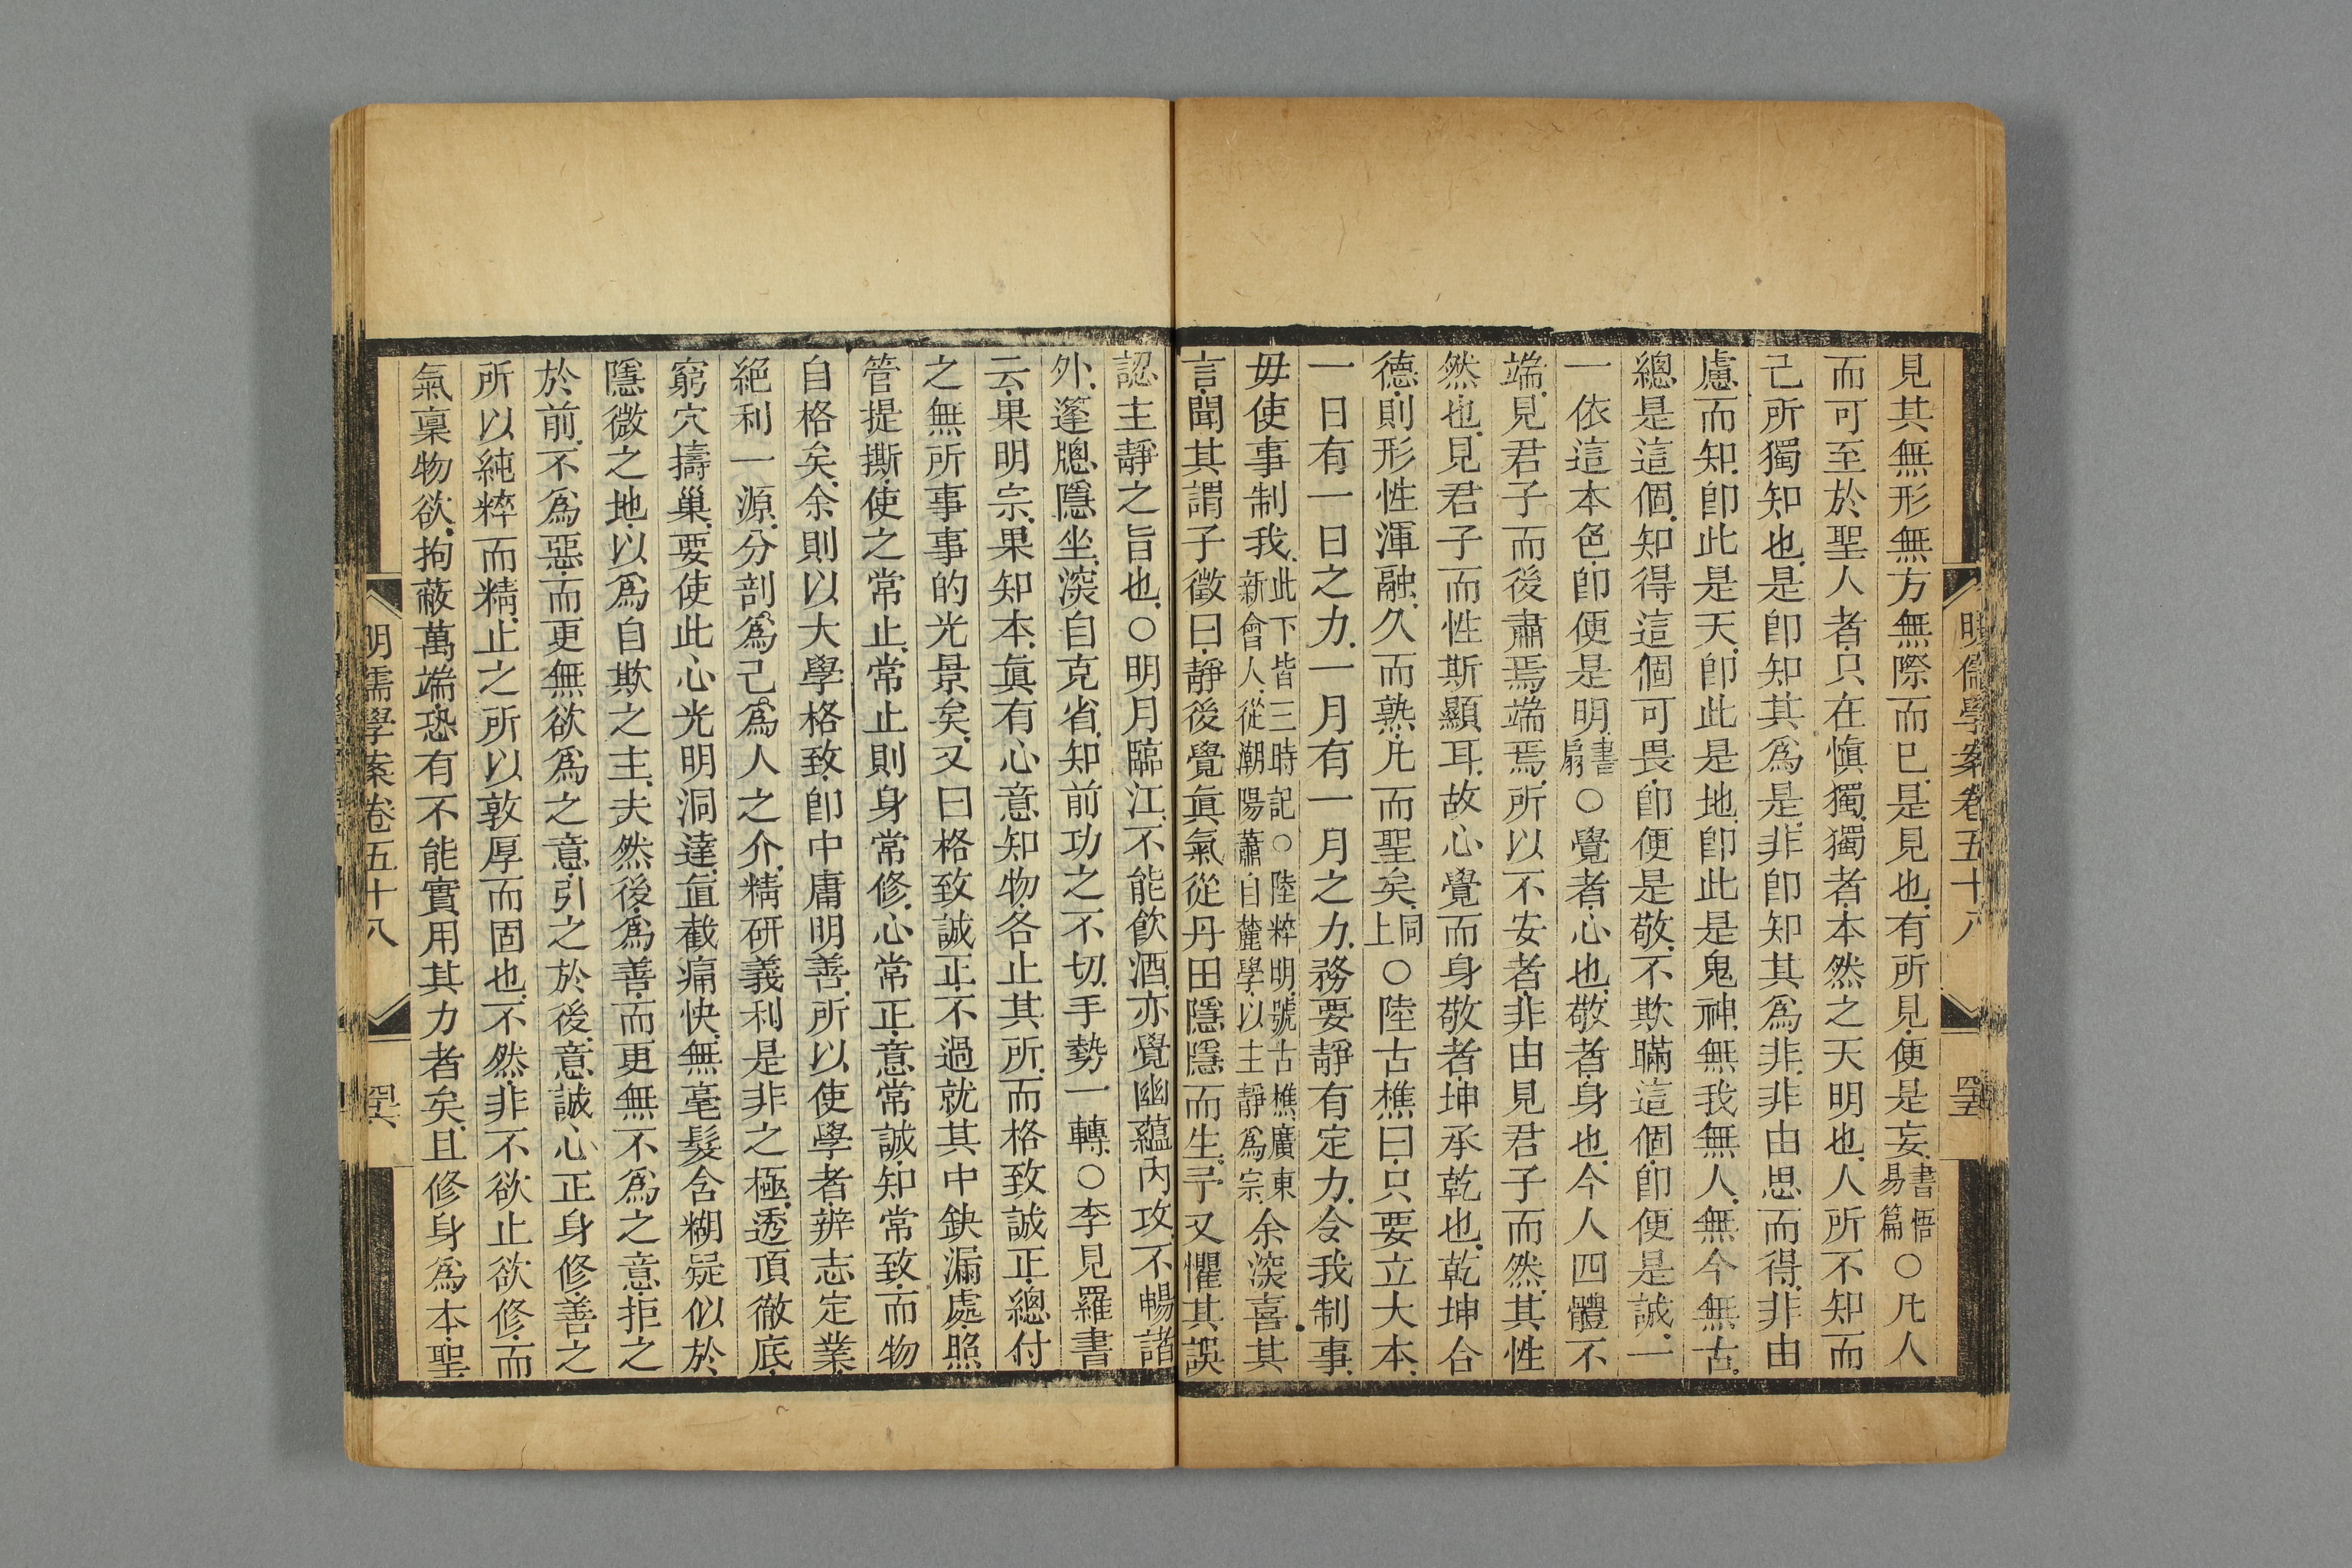 明儒學案卷五十八
見其無形無方無際而已是見也有所見便是妄書悟易篇○凡人
而可至於聖人者只在慎獨獨者本然之天明也人所不知而
己所獨知也是卽知其爲是非卽知其爲非非由思而得非由
慮而知卽此是天卽此是地卽此是鬼神無我無人無今無古
總是這個知得這個可畏卽便是敬不欺瞞這個卽便是誠一
一依這本色卽便是明書扇○覺者心也敬者身也今人四體不
端見君子而後肅焉端焉所以不安者非由見君子而然其性
然也見君子而性斯顯耳故心覺而身敬者坤承乾也乾坤合
德則形性渾融久而熟凡而聖矣同上○陸古樵曰只要立大本
一日有一日之力一月有一月之力務要靜有定力令我制事
毋使事制我此下皆三時記○陸粹明號古樵廣東新會人從潮陽蕭自麓學以主靜爲宗余深喜其
言聞其謂子徵曰靜後覺眞氣從丹田隱隱而生予又懼其誤
認主靜之旨也○明月臨江不能飲酒亦覺幽蘊內攻不暢諧
外篷牕隱坐深自克省知前功之不切手勢一轉○李見羅書
云果明宗果知本眞有心意知物各止其所而格致誠正總付
之無所事事的光景矣又曰格致誠正不過就其中鈌漏處照
管提撕使之常止常止則身常修心常正意常誠知常致而物
自格矣余則以大學格致卽中庸明善所以使學者辨志定業
絕利一源分剖爲己爲人之介精研義利是非之極透頂徹底
窮穴擣巢要使此心光明洞達直截痛快無毫髮含糊疑似於
隱微之地以爲自欺之主夫然後爲善而更無不爲之意拒之
於前不爲惡而更無欲爲之意引之於後意誠心正身修善之
所以純粹而精止之所以敦厚而固也不然非不欲止欲修而
氣稟物欲拘蔽萬端恐有不能實用其力者矣且修身爲本聖
明儒學案卷五十八